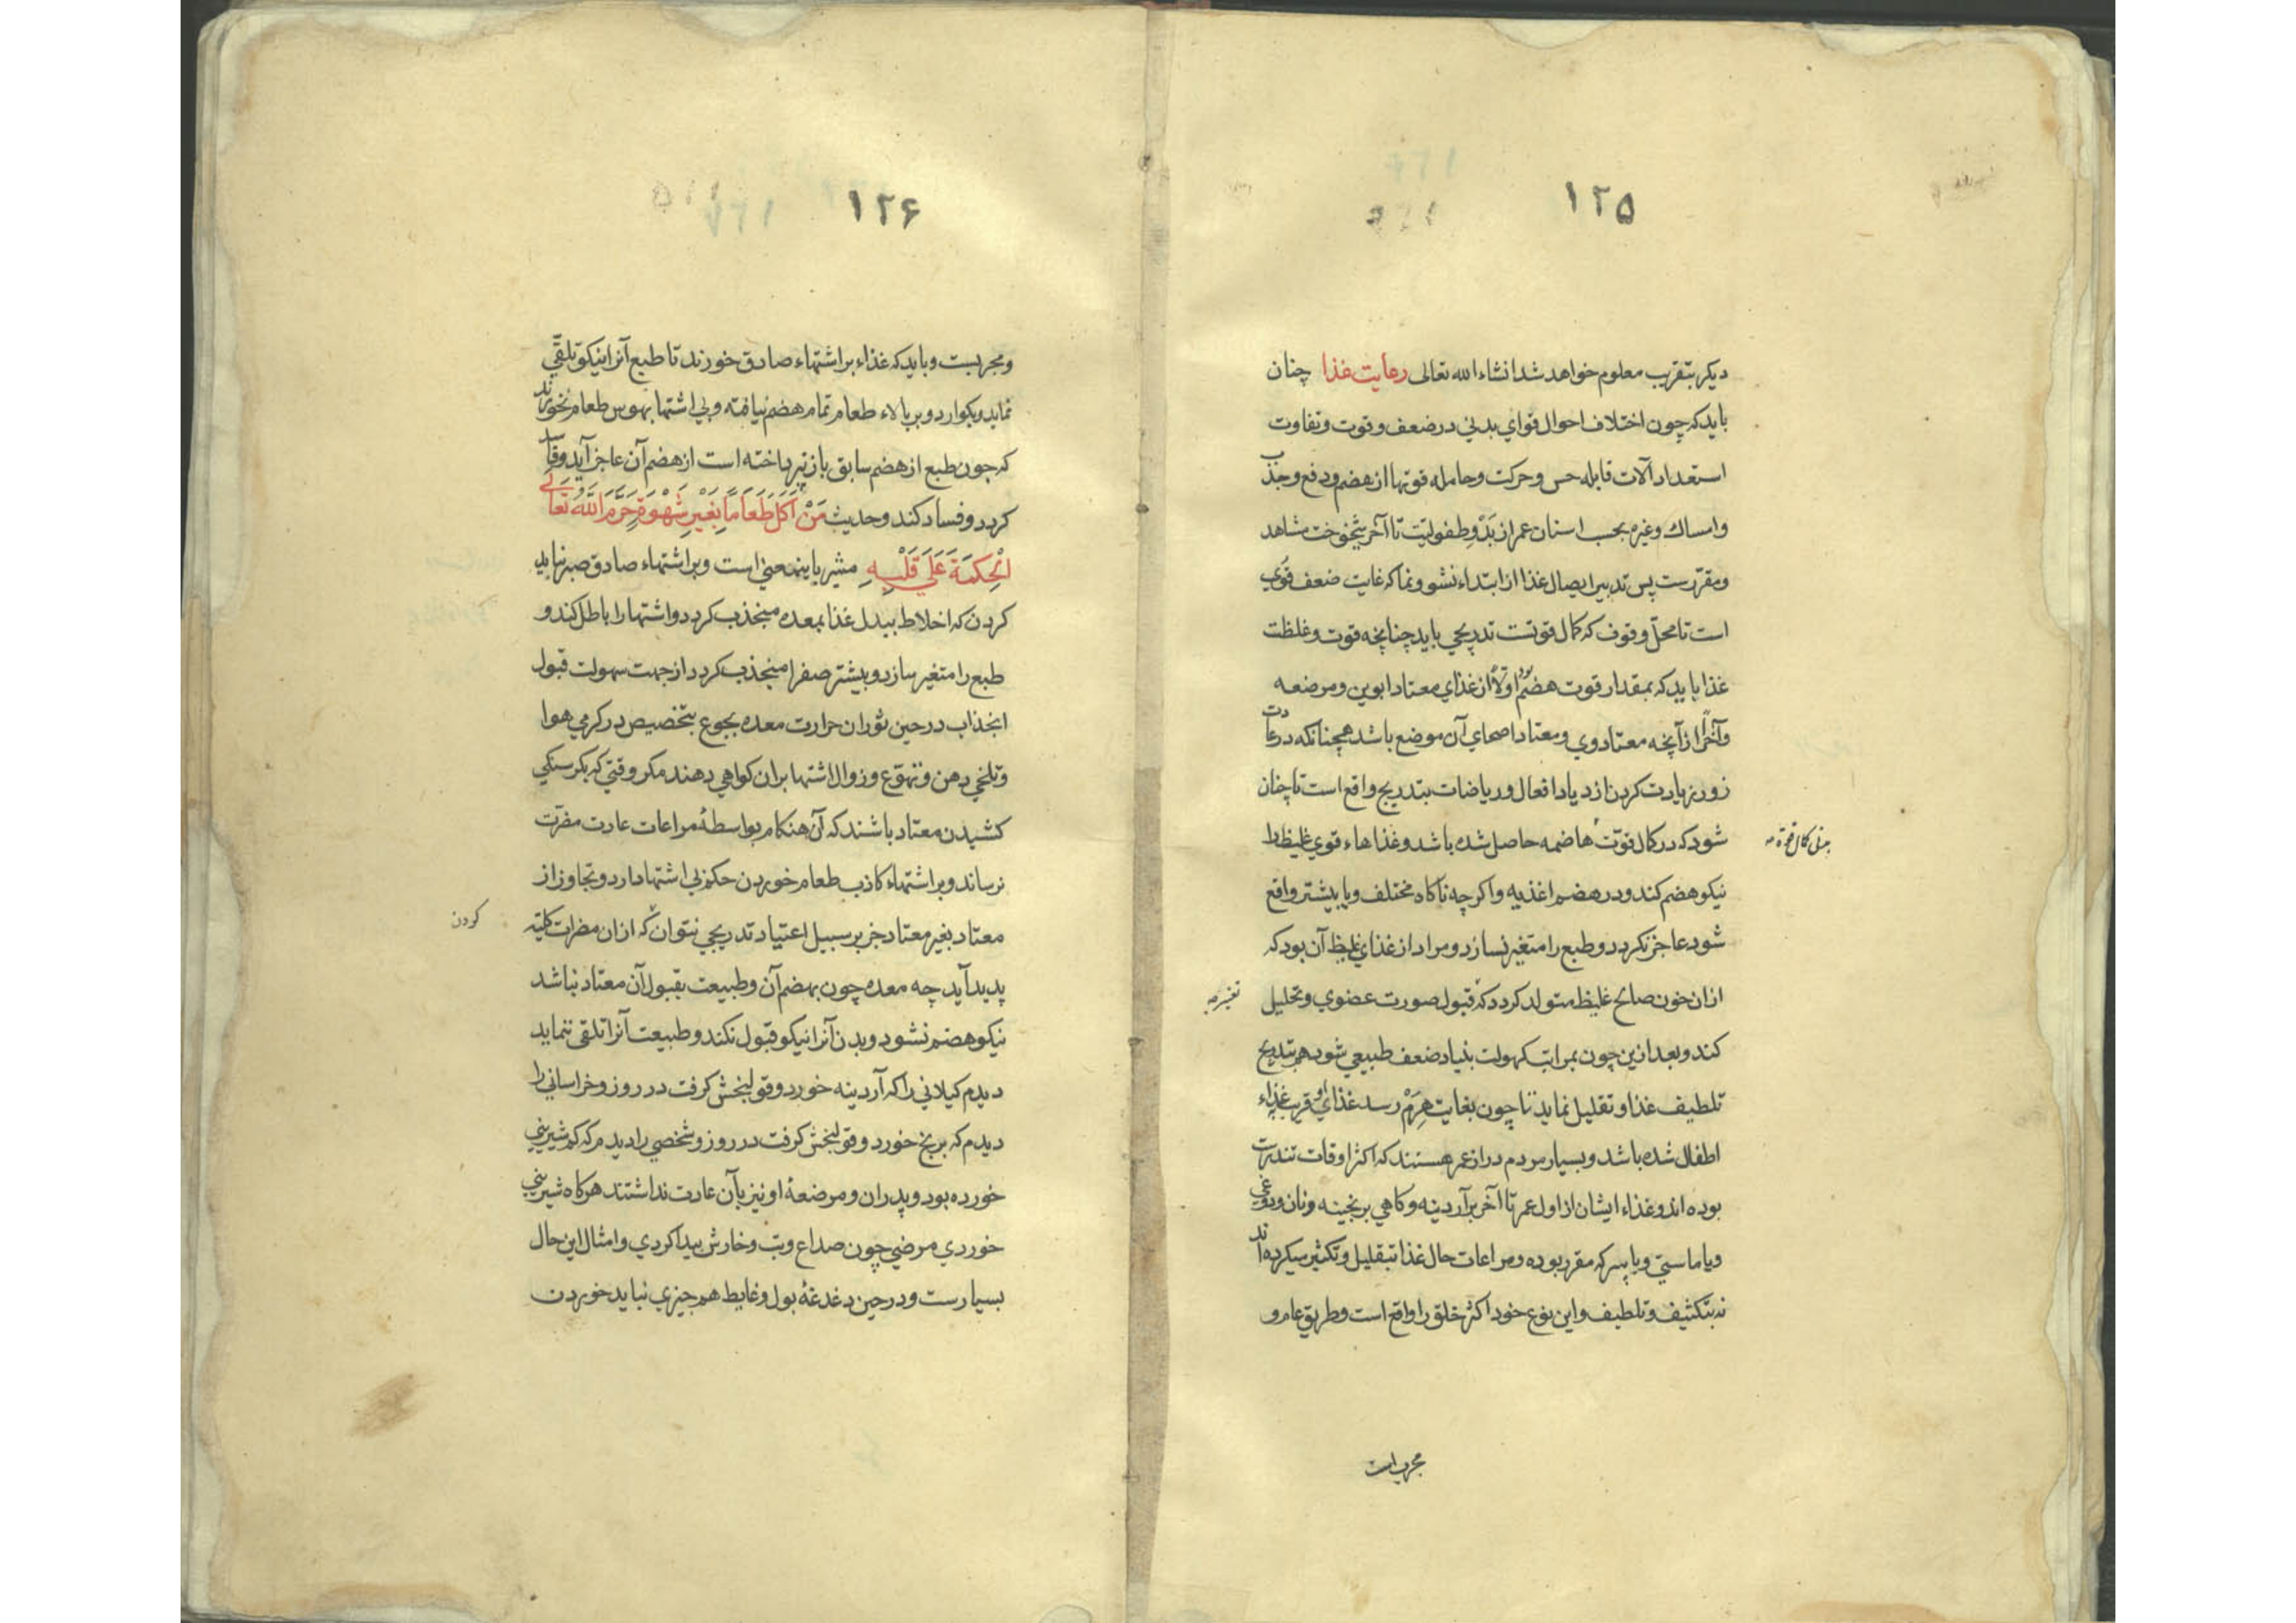 ۱۲۵
دیکر بتقریب معلوم خواهد شد انشاء الله تعالی رعایت غذا چنان
باید که چون اختلاف احوال قوای بدنی در ضعف و قوت و تفاوت
استعداد آلات قابله حس و حرکت و حامله قوتها از هضم و دفع و جذب
و امساك و غیره بحسب اسنان عمر از بَدْوِ طفولیّت تا آخر شیخوخت مشاهد
و مقرّرست پس تدبیر ایصال غذا از ابتداء نشو و نما که غایت ضعف قُوَی
است تا محلّ وقوف که کمال قوتست تدریجی باید چنانچه قوت و غلظت
غذا باید که بمقدار قوت هضم بود اوّلاً از غذای معتاد ابوین و مرضعه
و آخراً از آنچه معتاد وی و معتاد اصحای آن موضع باشد همچنانکه در عادت
زور زیادت کردن ازدیاد افعال و ریاضات بتدریج واقع است تا چنان
شود که در کمال قوّت هاضمه حاصل شده باشد و غذاهاء قوی غلیظ را
نیکو هضم کند و در هضم اغذیه و اکرچه ناکاه مختلف و یا بیشتر واقع
شود عاجز نکردد و طبع را متغیر نسازد و مراد از غذای غلیظ آن بود که
ازان خون صالح غلیظ متولد کردد که قبول صورت عضوی و تحلیل
کند و بعد ازین چون بمراتب کهولت بنیاد ضعف طبیعی شود هم بتدریج
تلطیف غذا و تقلیل نماید تا چون بغایت هِرَمْ رسد غذای او قریب بغذاء
اطفال شده باشد و بسیار مردم دراز عمر هستند که اکثر اوقات تندرست
بوده اند و غذاء ایشان از اول عمر تا آخر بر آردینه و کاهی برنجینه و نان و دوغی
و یا ماستی و یا پسرکه مقرر بوده و مراعات حال غذا بتقلیل و تکثیر میکرده اند
نه بتکثیف و تلطیف و این نوع خود اکثر خلق را واقع است و طریق عام و
مجربست
۱۲۶
و مجربست و باید که غذاء بر اشتهاء صادق خورند تا طبع آنرا نیکو تلقّی
نماید و بکوارد و بر بالاء طعام تمام هضم نیافته و بی اشتها بهوس طعام نخورند
که چون طبع از هضم سابق باز نپرداخته است از هضم آن عاجز آید و
کردد و فساد کند و حدیث مَنْ اَکَلَ طَعَامًا بِغَیْرِ شَهْوَةٍ حَرَّمَ اللَّهُ تَعَالَی
الْحِکمَةَ عَلَی قَلْبِهِ مشیر باینمعنی است و بر اشتهاء صادق صبر نباید
کردن که اخلاط ببدل غذا بمعده منجذب کردد و اشتها را باطل کند و
طبع را متغیر سازد و بیشتر صفرا منجذب کردد از جهت سهولت قبول
انجذاب در حین ثوران حرارت معده بجوع بتخصیص در کرمی هوا
و تلخی دهن و تهوّع و زوال اشتها بران کواهی دهند مکر وقتی که بکرسنکی
کشیدن معتاد باشند که آن هنکام بواسطهٔ مراعات عادت مضرت
نرساند و بر اشتهاء کاذب طعام خوردن حکم بی اشتها دارد و تجاوز از
معتاد بغیر معتاد جز بر سبیل اعتیاد تدریجی نتوان که ازان مضرات کلیّه
کردن
پدید آید چه معده چون بهضم آن و طبیعت بقبول آن معتاد نباشد
نیکو هضم نشود و بدن آنرا نیکو قبول نکند و طبیعت آنرا تلقی ننماید
دیدم کیلانی را که آردینه خورد و قولنجش کرفت در روز و خراسانی را
دیدم که برنج خورد و قولنجش کرفت در روز و شخصی را دیدم که کم شیرینی
خورده بود و پدران و مرضعهٔ او نیز بآن عادت نداشتند هرکاه شیرینی
خوردی مرضی چون صداع و تب و خارش پیدا کردی و امثال این حال
بسیارست و در حین دغدغهٔ بول و غایط هم چیزی نباید خوردن